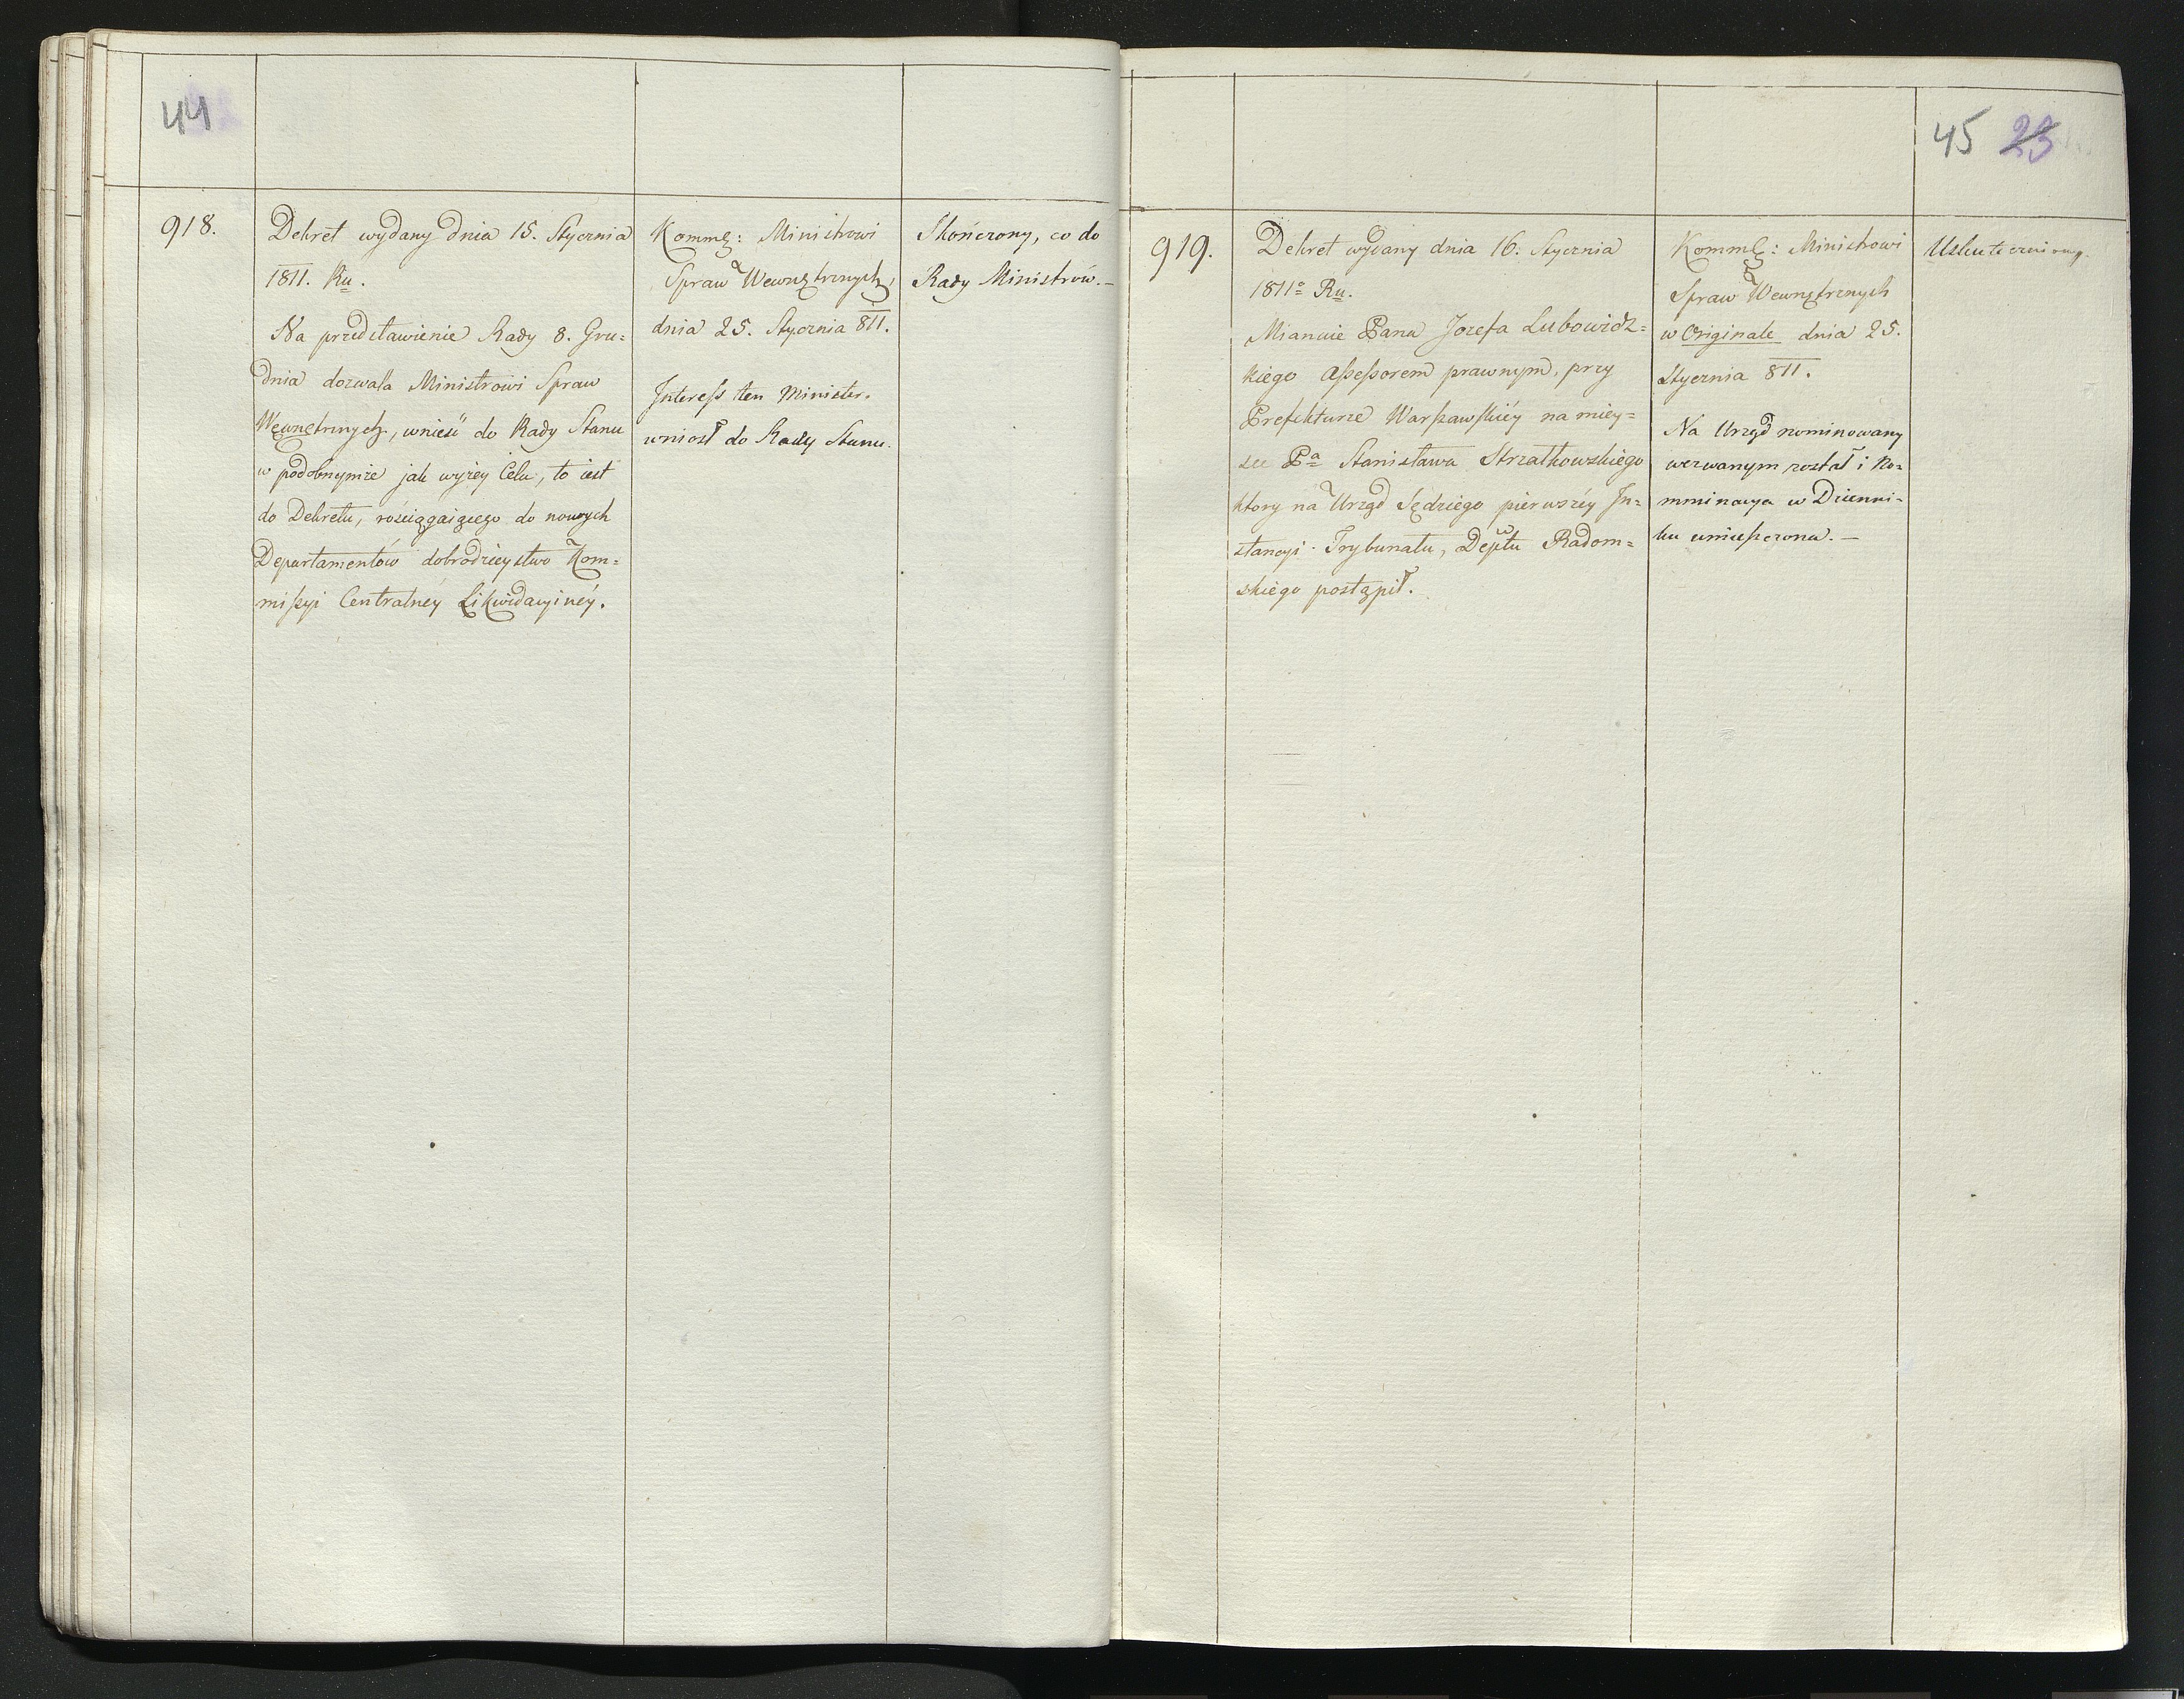 44
918.
Dekret wydany dnia 15. Stycznia
1811. Ru.
Na przedstawienie Rady 8. Gru=
dnia dozwala Ministrowi Spraw
Wewnętrznych, wnieść do Rady Stanu
w podobnymże jak wyżey Celu, to iest
do Dekretu, rościągaiącego do nowych
Departamentów dobrodzieystwo Kom=
missyi Centralnéy Likwidacyinéy.
Kommę: Ministrowi
Spraw Wewnętrznych,
dnia 25. Stycznia 811.
Interess ten Minister.
wniosł do Rady Stanu.
Skończony, co do
Rady Ministrów.—
45 23
919.
Dekret wydany dnia 16. Stycznia
1811o Ru.
Mianuie Pana Jozefa Lubowidz=
kiego Assessorem prawnym, przy
Prefekturze Warszawskiéy na miey=
sce Pa Stanisława Strzałkowskiego
ktory na Urząd Sędziego pierwszéy In=
stancyi Trybunału, Deptu Radom=
skiego postąpił.
Kommę: Ministrowi
Spraw Wewnętrznych
w Originale dnia 25.
Stycznia 811.
Na Urząd nominowany
wezwanym został i No=
mminacya w Dzienni=
ku umieszczona.—
Uskuteczniony.